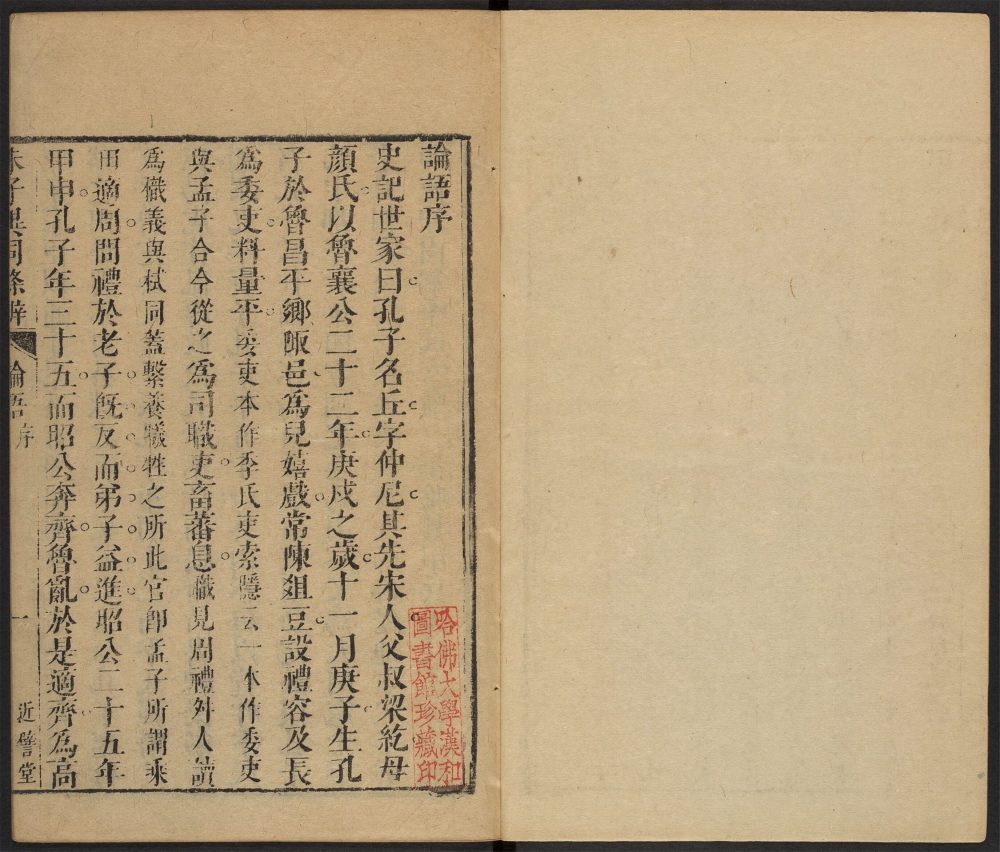 論語序
史記世家曰孔子名丘字仲尼其先宋人父叔梁紇母
顏氏以魯襄公二十二年庚戌之歲十一月庚子生孔
子於魯昌平鄉陬邑為兒嬉戲常陳俎豆設禮容及長
為委吏料量平委吏本作季氏吏索隱云一本作委吏
與孟子合今從之為司職吏畜蕃息職見周禮牛人讀
為樴義與杙同蓋繫養犧牲之所此官卽孟子所謂乘
田適周問禮於老子旣反而弟子益進昭公二十五年
甲申孔子年三十五而昭公奔齊魯亂於是適齊為高
朱子異同條辨
論語序
一
近譬堂
哈佛大學漢和
圖書館珍藏印